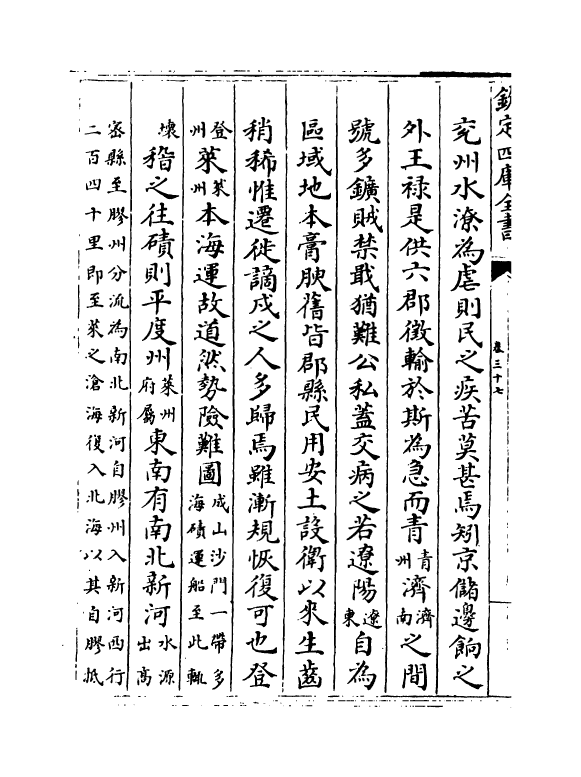 欽定四庫全書
卷三十七
兖州水潦為虐則民之疾苦莫甚焉矧京儲邊餉之
外王禄是供六郡徵輸於斯為急而青青州濟濟南之間
號多鑛賊禁戢猶難公私蓋交病之若遼陽遼東自為
區域地本膏腴舊皆郡縣民用安土設衛以來生齒
稍稀惟遷徙謫戍之人多歸焉雖漸規恢復可也登
登州萊萊州本海運故道然勢險難圖成山沙門一帶多海磧運船至此輒
壞稽之往蹟則平度州萊州府屬東南有南北新河水源出高
密縣至膠州分流為南北新河自膠州入新河西行
二百四十里即至萊之滄海復入北海以其自膠抵